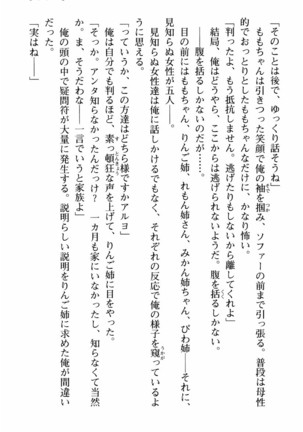 「そのことは後で、ゆっくり話そうね」
ももちゃんは引きつった笑顔で俺の袖を掴み、ソファーの前まで引っ張る。普段は母性
的でおっとりとしたももちゃんなだけに、かなり怖い。
「判ったよ、もう抵抗しません。逃げたりもしないから離してくれよ」
結局、俺はどうやら、ここからは逃げられないようだ。腹を括るしかない。
――腹を括るしかないのだが……。
目の前にはももちゃん、りんご姉、れもん姉さん、みかん姉ちゃん、びわ姉――それに、
見知らぬ女性が五人――。
見知らぬ女性達は俺に話しかけるでもなく、それぞれの反応で俺の様子を窺っているよ
うに思える。
「っていうか、この方達はどちら様ですかアルヨ」
俺は自分でも判るほど、素っ頓狂な声を上げて、りんご姉に目をやった。
「そっか。アンタ知らなかったんだっけ？　一カ月も家にいなかったし、知らなくて当然
か。ま、そうだわな――一言でいうと家族よ」
俺の頭の中で疑問符が大量に発生する。説明らしい説明をりんご姉に求めた俺が間違い
だった。
「実はね――」